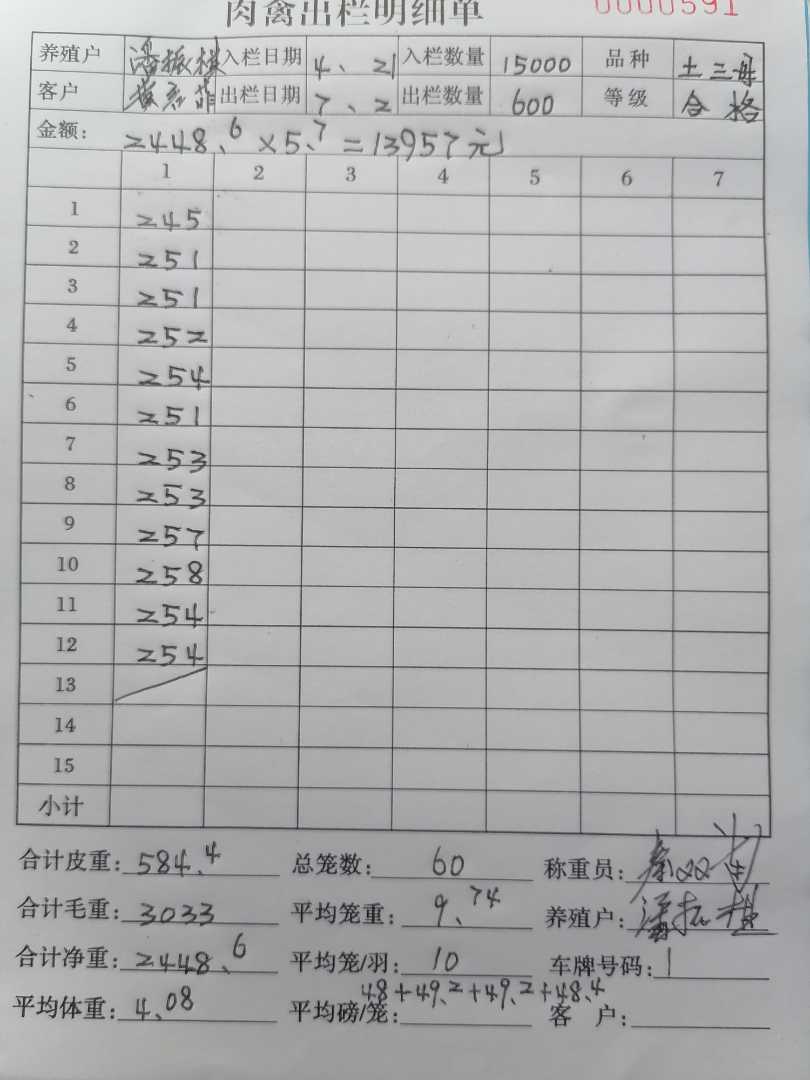 肉禽出栏明细单 0000591
养殖户 潘振 入栏日期 4、21 入栏数量 15000 品种 土三母
客户 出栏日期 7、2 出栏数量 600 等级 合格
金额: 2448.6×5.7=13957元
1 2 3 4 5 6 7
1 245
2 251
3 251
4 252
5 254
6 251
7 253
8 253
9 257
10 258
11 254
12 254
13
14
15
小计
合计皮重: 584.4 总笼数: 60 称重员:
合计毛重: 3033 平均笼重: 9.74 养殖户: 潘振
合计净重: 2448.6 平均笼/羽: 10 车牌号码: 1
48+49.2+49.2+48.4
平均体重: 4.08 平均磅/笼: 客户: